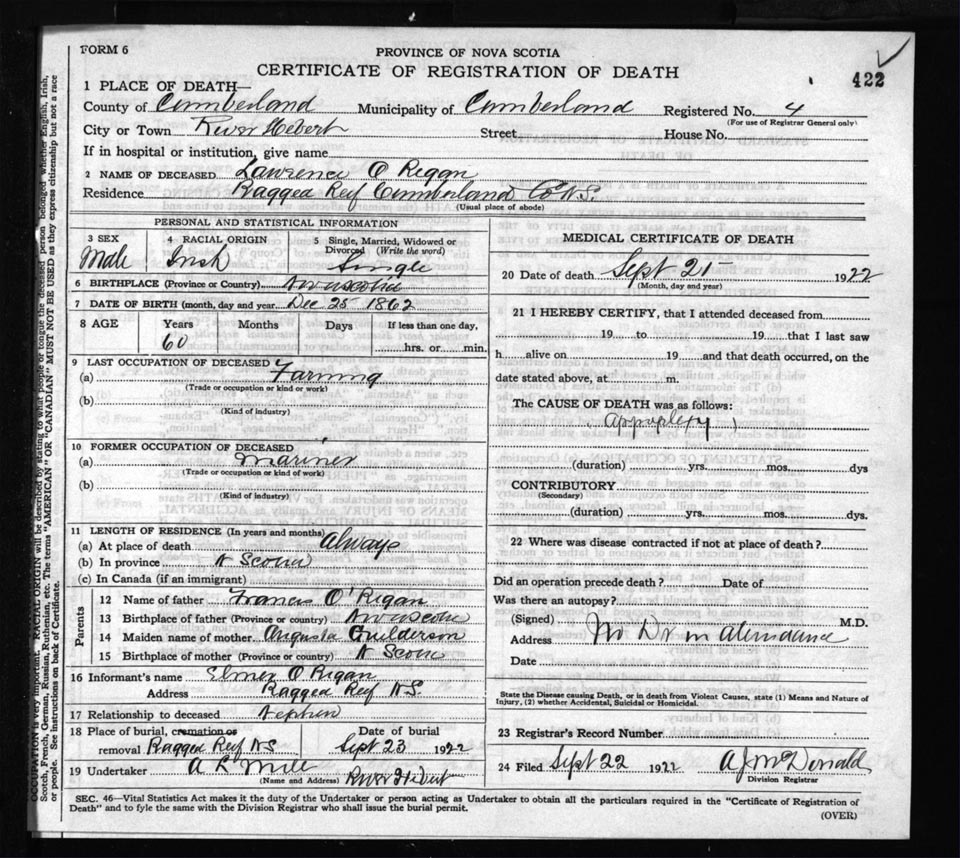 FORM 6
PROVINCE OF NOVA SCOTIA
CERTIFICATE OF REGISTRATION OF DEATH
422
1 PLACE OF DEATH—
County of Cumberland Municipality of Cumberland Registered No. 4
(For use of Registrar General only)
City or Town River Hebert Street House No.
If in hospital or institution, give name
2 NAME OF DECEASED Lawrence O Regan
Residence Ragged Reef Cumberland Co N.S.
(Usual place of abode)
PERSONAL AND STATISTICAL INFORMATION
3 SEX Male
4 RACIAL ORIGIN Irish
5 Single, Married, Widowed or Divorced (Write the word) Single
6 BIRTHPLACE (Province or Country) Novascotia
7 DATE OF BIRTH (month, day and year) Dec 25 1862
8 AGE Years Months Days If less than one day,
60 hrs. or min.
9 LAST OCCUPATION OF DECEASED
(a) Farming
(Trade or occupation or kind or work)
(b)
(Kind of industry)
10 FORMER OCCUPATION OF DECEASED
(a) Mariner
(Trade or occupation or kind of work)
(b)
(Kind of industry)
11 LENGTH OF RESIDENCE (In years and months)
(a) At place of death Always
(b) In province N Scotia
(c) In Canada (if an immigrant)
Parents
12 Name of father Francis O'Regan
13 Birthplace of father (Province or country) Novascotia
14 Maiden name of mother Augusta Guilderson
15 Birthplace of mother (Province or country) N Scotia
16 Informant's name Elmer O Regan
Address Ragged Reef N.S.
17 Relationship to deceased Nephew
18 Place of burial, cremation or removal Ragged Reef NS
Date of burial Sept 23 1922
19 Undertaker
(Name and Address) River Hibert
MEDICAL CERTIFICATE OF DEATH
20 Date of death Sept 21— 1922
(Month, day and year)
21 I HEREBY CERTIFY, that I attended deceased from
19 to 19 that I last saw
h alive on 19 and that death occurred, on the
date state above, at m.
The CAUSE OF DEATH was as follows:
Appoplexy
(duration) yrs. mos. dys
CONTRIBUTORY
(Secondary)
(duration) yrs. mos. dys.
22 Where was disease contracted if not at place of death?
Did an operation precede death? Date of
Was there an autopsy?
(Signed) M.D.
Address No Dr in atendance
Date
State the Disease causing Death, or in death from Violent Causes, state (1) Means and Nature of
Injury, (2) whether Accidental, Suicidal or Homicidal.
23 Registrar's Record Number
24 Filed Sept 22 1922 A J McDonald
Division Registrar
SEC. 46—Vital Statistics Act makes it the duty of the Undertaker or person acting as Undertaker to obtain all the particulars required in the "Certificate of Registration of
Death" and to fyle the same with the Division Registrar who shall issue the burial permit.
(OVER)
OCCUPATION is very important. RACIAL ORIGIN will be described by stating to what people or tongue the deceased person belonged whether English, Irish,
Scotch, French, German, Russian, Ruthenian, etc. The terms "AMERICAN" OR "CANADIAN" MUST NOT BE USED as they express citizenship but not a race
or people. See instructions on back of Certificate.